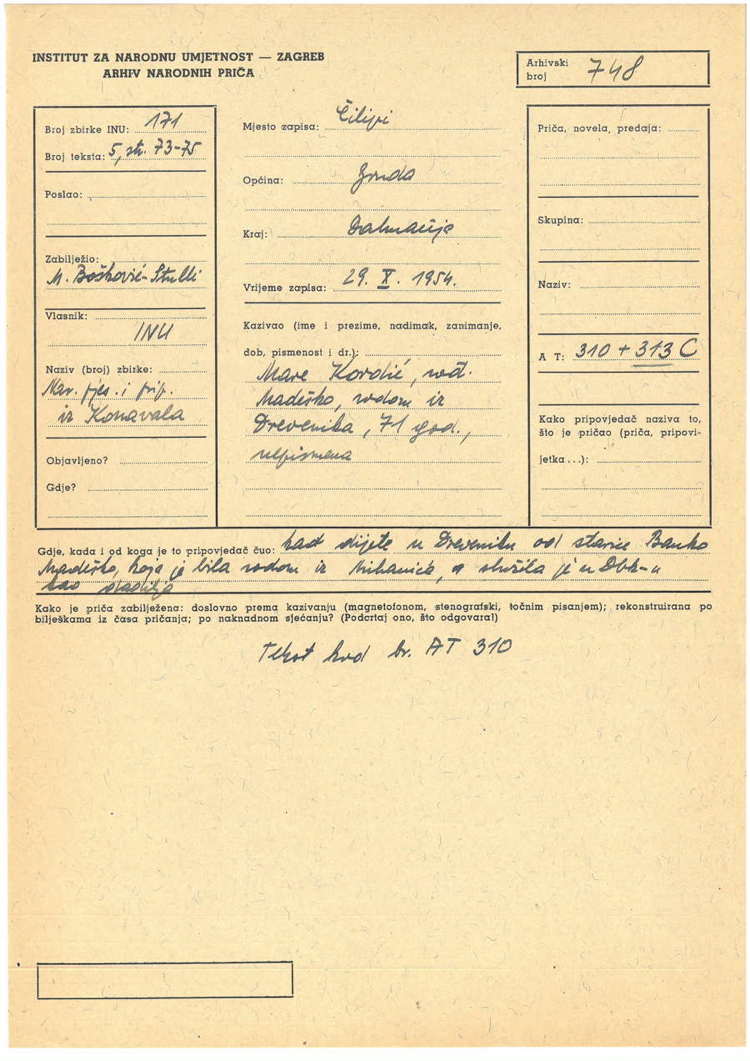 INSTITUT ZA NARODNU UMJETNOST — ZAGREB
ARHIV NARODNIH PRIČA
Arhivski broj 748
Broj zbirke INU: 171
Broj teksta: 5, str. 73-75
Poslao:
Zabilježio:
M. Bošković-Stulli
Vlasnik:
INU
Naziv (broj) zbirke:
Nar. pjes. i prip.
iz Konavala
Objavljeno?
Gdje?
Mjesto zapisa: Čilipi
Općina: Gruda
Kraj: Dalmacija
Vrijeme zapisa: 29. X. 1954.
Kazivao (ime i prezime, nadimak, zanimanje,
dob, pismenost i dr.):
Mare Kordić, rođ.
Madeško, rodom iz
Drvenika, 71 god.,
nepismena
Priča, novela, predaja:
Skupina:
Naziv:
A T: 310 + 313 C
Kako pripovjedač naziva to,
što je pričao (priča, pripovi-
jetka...):
Gdje, kada i od koga je to pripovjedač čuo: kad dijete u od starice Banko
koja je bila rodom iz Mihanića, a služila je u Dbk-u
kao
Kako je priča zabilježena: doslovno prema kazivanju (magnetofonom, stenografski, točnim pisanjem); rekonstruirana po
bilješkama iz časa pričanja; po naknadnom sjećanju? (Podcrtaj ono, što odgovara!)
Tekst kod br. AT 310